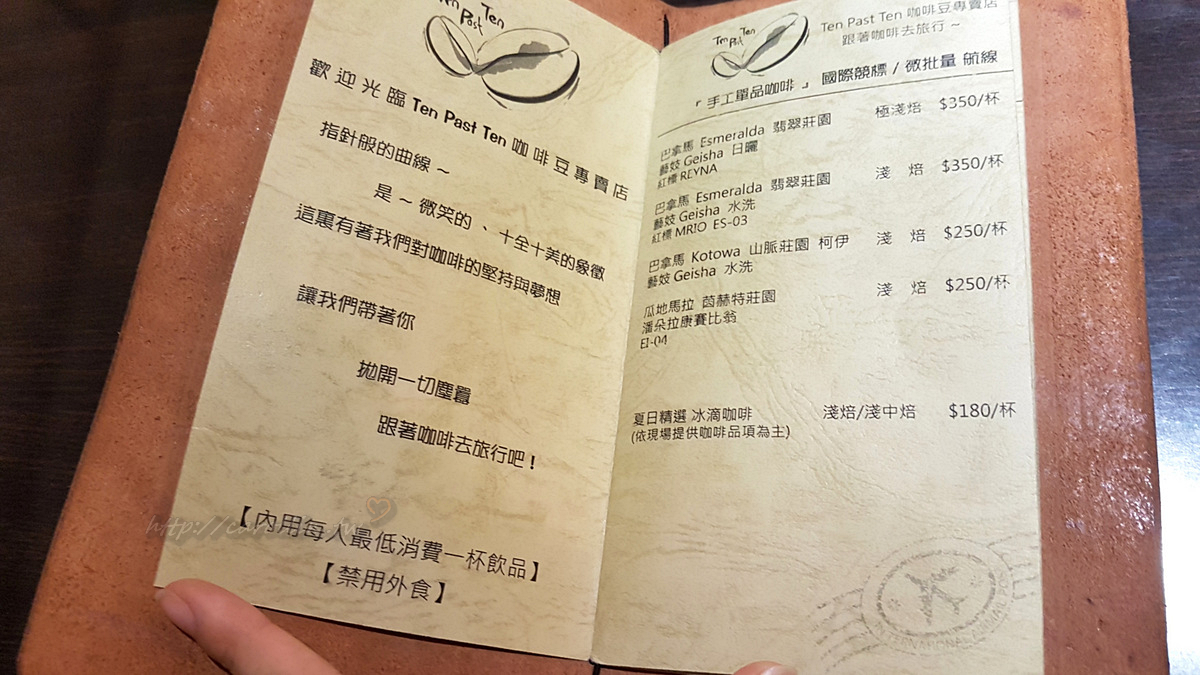 Ten Past Ten
歡迎光臨 Ten Past Ten 咖啡豆專賣店
指針般的曲線～
是～微笑的、十全十美的象徵
這裏有著我們對咖啡的堅持與夢想
讓我們帶著你
拋開一切塵囂
跟著咖啡去旅行吧！
【內用每人最低消費一杯飲品】
【禁用外食】
Ten Past Ten
Ten Past Ten 咖啡豆專賣店
跟著咖啡去旅行～
『手工單品咖啡』 國際競標 / 微批量 航線
巴拿馬 Esmeralda 翡翠莊園 極淺焙 $350/杯
藝妓 Geisha 日曬
紅標 REYNA
巴拿馬 Esmeralda 翡翠莊園 淺 焙 $350/杯
藝妓 Geisha 水洗
紅標 MRIO ES-03
巴拿馬 Kotowa 山脈莊園 柯伊 淺 焙 $250/杯
藝妓 Geisha 水洗
瓜地馬拉 茵赫特莊園 淺 焙 $250/杯
潘朵拉康賽比翁
EI-04
夏日精選 冰滴咖啡 淺焙/淺中焙 $180/杯
(依現場提供咖啡品項為主)
INTERNATIONAL AIRMAIL
http://